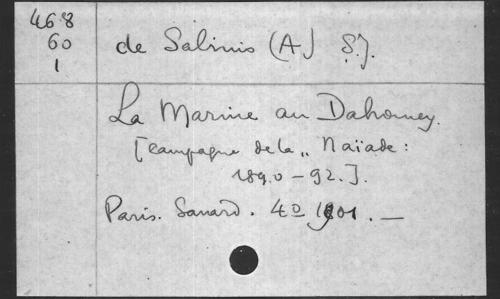 468
60
1
de Salinis (A) S.J.
La Marine au Dahomey.
[campagne de la „ Naïade:
1890-92.].
Paris. Sanard. 4º 1901. —